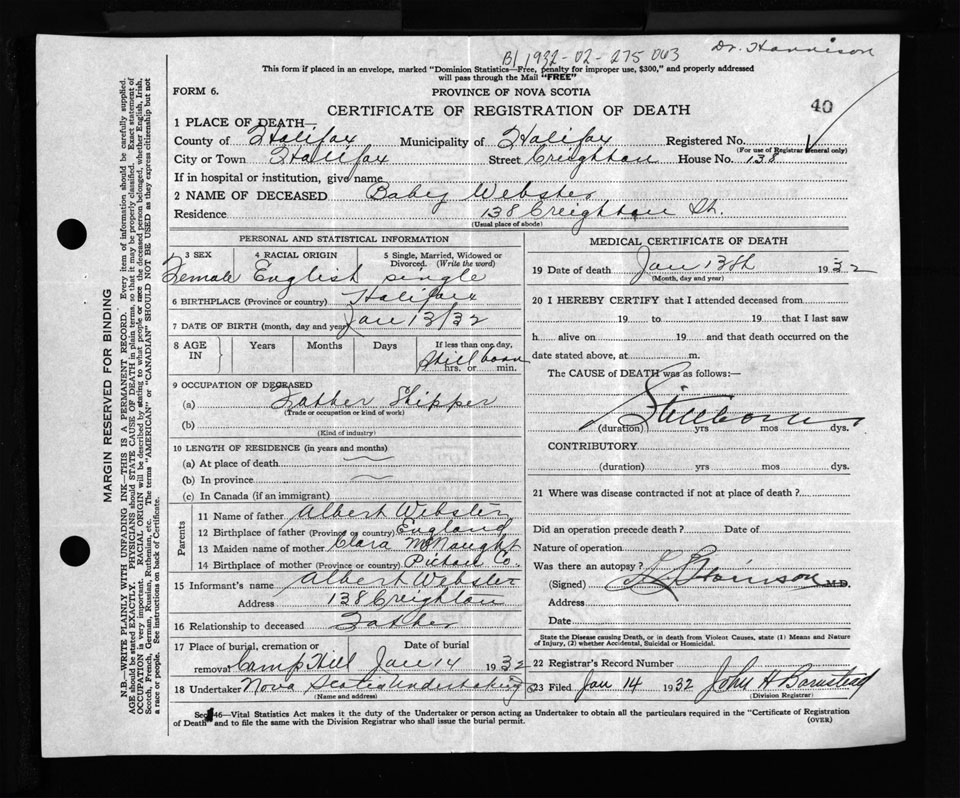 B/ 1932-02-275 063
Dr. Harrison
This form if placed in an envelope, marked "Dominion Statistics—Free, penalty for improper use, $300," and properly addressed
will pass through the Mail "FREE"
FORM 6.
PROVINCE OF NOVA SCOTIA
CERTIFICATE OF REGISTRATION OF DEATH
40
1 PLACE OF DEATH—
County of Halifax Municipality of Halifax Registered No.
(For use of Registrar General only)
City or Town Halifax Street Creighton House No. 138
If in hospital or institution, give name
2 NAME OF DECEASED Baby Webster
Residence 138 Creighton St.
(Usual place of abode)
PERSONAL AND STATISTICAL INFORMATION
3 SEX 4 RACIAL ORIGIN 5 Single, Married, Widowed or Divorced. (Write the word)
Female English single
6 BIRTHPLACE (Province or country) Halifax
7 DATE OF BIRTH (month, day and year) Jan 13/32
8 AGE IN Years Months Days If less than one day,
Stillborn
hrs. or min.
9 OCCUPATION OF DECEASED
(a) Father Shipper
(Trade or occupation or kind of work)
(b)
(Kind of industry)
10 LENGTH OF RESIDENCE (in years and months)
(a) At place of death
(b) In province
(c) In Canada (if an immigrant)
Parents
11 Name of father Albert Webster
12 Birthplace of father (Province or country) England
13 Maiden name of mother Clara McNaught
14 Birthplace of mother (Province or country) Pictou Co.
15 Informant's name Albert Webster
Address 138 Creighton
16 Relationship to deceased Father
17 Place of burial, cremation or removal Date of burial
Camp Hill Jan 14 1932
18 Undertaker Nova Scotia Undertaking
(Name and address)
MEDICAL CERTIFICATE OF DEATH
19 Date of death Jan 13th 1932
(Month, day and year)
20 I HEREBY CERTIFY that I attended deceased from
19 to 19 that I last saw
h alive on 19 and that death occurred on the
date stated above, at m.
The CAUSE of DEATH was as follows:—
Stillborn
(duration) yrs mos dys.
CONTRIBUTORY
(duration) yrs mos dys.
21 Where was disease contracted if not at place of death?
Did an operation precede death? Date of
Nature of operation
Was there an autopsy?
(Signed) M.D.
Address
Date
State the Disease causing Death, or in death from Violent Causes, state (1) Means and Nature
of Injury, (2) whether Accidental, Suicidal or Homicidal.
22 Registrar's Record Number
23 Filed Jan 14 1932 John H Barnstead
(Division Registrar)
Sec. 46—Vital Statistics Act makes it the duty of the Undertaker or person acting as Undertaker to obtain all the particulars required in the "Certificate of Registration
of Death" and to file the same with the Division Registrar who shall issue the burial permit.
(OVER)
MARGIN RESERVED FOR BINDING
N.B.—WRITE PLAINLY WITH UNFADING INK—THIS IS A PERMANENT RECORD. Every item of information should be carefully supplied.
AGE should be stated EXACTLY. PHYSICIANS should STATE CAUSE OF DEATH in plain terms, so that it may be properly classified. Exact statement of
OCCUPATION is very important. RACIAL ORIGIN will be described by stating to what people or race the deceased person belonged, whether English, Irish,
Scotch, French, German, Russian, Ruthenian, etc. The terms "AMERICAN" or "CANADIAN" SHOULD NOT BE USED as they express citizenship but not
a race or people. See instructions on back of Certificate.